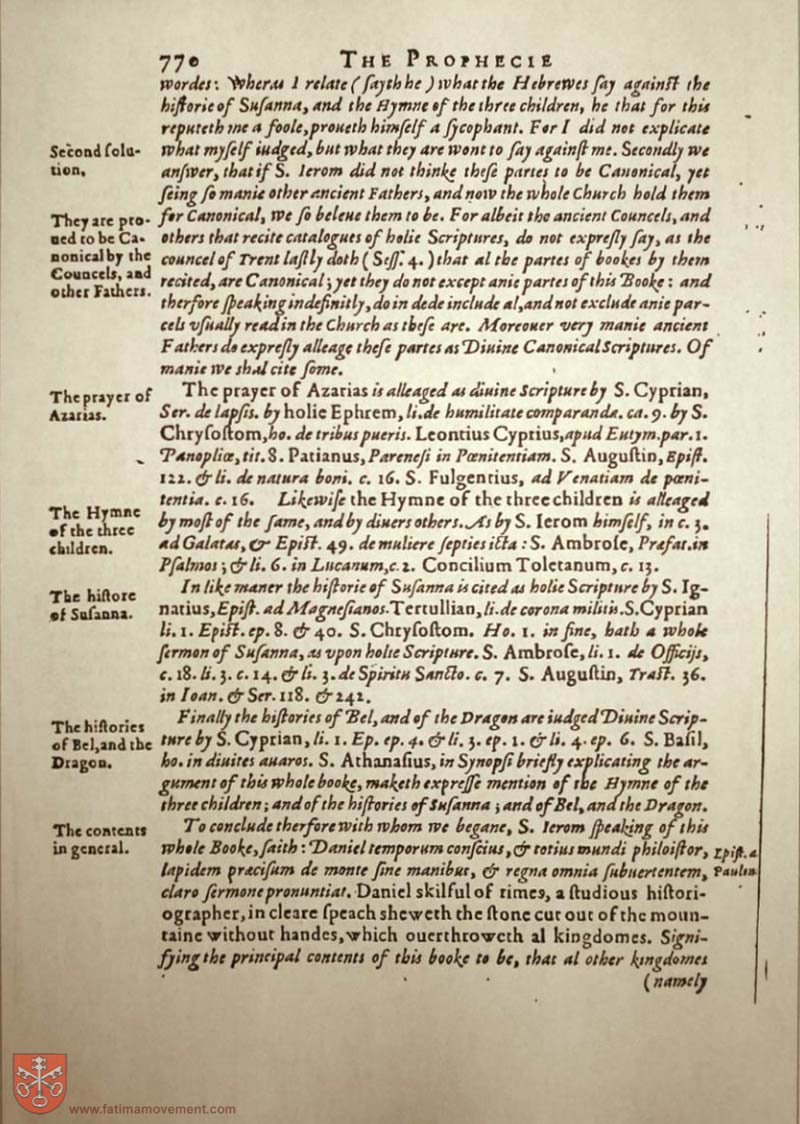 770 THE PROPHECIE
wordes: Wheras I relate (sayth he) what the Hebrewes say against the
historie of Susanna, and the Hymne of the three children, he that for this
reputeth me a foole, proueth himself a sycophant. For I did not explicate
Second solu- what myself iudged, but what they are wont to say against me. Secondly we
tion, answer, that if S. Ierom did not thinke these partes to be Canonical, yet
seing so manie other ancient Fathers, and now the whole Church hold them
They are pro- for Canonical, we so beleue them to be. For albeit the ancient Councels, and
ued to be Ca- others that recite catalogues of holie Scriptures, do not expresly say, as the
nonical by the councel of Trent lastly doth (Sess. 4.) that al the partes of bookes by them
Councels, and recited, are Canonical; yet they do not except anie partes of this Booke: and
other Fathers. therfore speaking indefinitly, do in dede include al, and not exclude anie par-
cels vsually read in the Church as these are. Moreouer very manie ancient
Fathers do expresly alleage these partes as Diuine Canonical Scriptures. Of
manie we shal cite some.
The prayer of The prayer of Azarias is alleaged as diuine Scripture by S. Cyprian,
Azarias. Ser. de lapsis. by holie Ephrem, li. de humilitate comparanda. ca. 9. by S.
Chrysostom, ho. de tribus pueris. Leontius Cyprius, apud Eutym. par. 1.
Panopliæ, tit. 8. Patianus, Parenesi in Pœnitentiam. S. Augustin, Epist.
122. & li. de natura boni. c. 16. S. Fulgentius, ad Venatiam de pœni-
tentia. c. 16. Likewise the Hymne of the three children is alleaged
The Hymne by most of the same, and by diuers others. As by S. Ierom himself, in c. 3.
of the three ad Galatas, & Epist. 49. de muliere septies icta: S. Ambrose, Præfat. in
children. Psalmos; & li. 6. in Lucanum, c. 2. Concilium Toletanum, c. 13.
The histore In like maner the historie of Susanna is cited as holie Scripture by S. Ig-
of Susanna. natius, Epist. ad Magnesianos. Tertullian, li. de corona militis. S. Cyprian
li. 1. Epist. ep. 8. & 40. S. Chrysostom. Ho. 1. in fine, hath a whole
sermon of Susanna, as vpon holie Scripture. S. Ambrose, li. 1. de Officijs,
c. 18. li. 3. c. 14. & li. 3. de Spiritu Sancto. c. 7. S. Augustin, Tract. 36.
in Ioan. & Ser. 118. & 242.
The histories Finally the histories of Bel, and of the Dragon are iudged Diuine Scrip-
of Bel, and the ture by S. Cyprian, li. 1. Ep. ep. 4. & li. 3. ep. 1. & li. 4. ep. 6. S. Basil,
Dragon. ho. in diuites auaros. S. Athanasius, in Synopsi briefly explicating the ar-
gument of this whole booke, maketh expresse mention of the Hymne of the
three children; and of the histories of Susanna; and of Bel, and the Dragon.
The contents To conclude therfore with whom we begane, S. Ierom speaking of this
in general. whole Booke, saith: Daniel temporum conscius, & totius mundi philoistor, Epist. a
lapidem præcisum de monte sine manibus, & regna omnia subuertentem, Paulin
claro sermone pronuntiat. Daniel skilful of times, a studious histori-
ographer, in cleare speach sheweth the stone cut out of the moun-
taine without handes, which ouerthroweth al kingdomes. Signi-
fying the principal contents of this booke to be, that al other kingdomes
(namely
www.fatimamovement.com